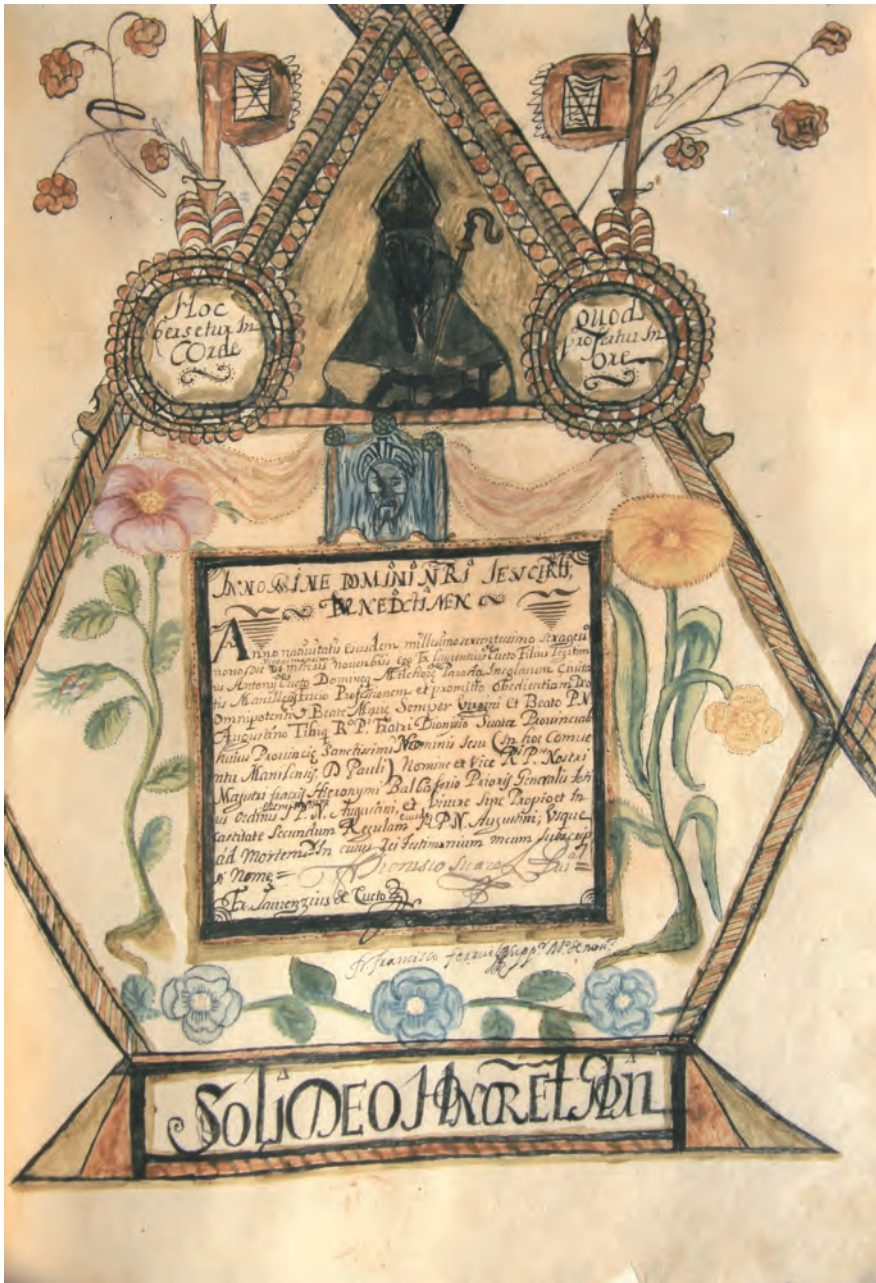 Hoc
versetur In
COrde
Quod
profertur In
Ore
IN NOMINE DOMINI ÑRI IESV CĤRTI,
BENEDICTI AMEN
Anno natiuitatis eiusdem millesimo sexcentesimo sexagesi
mono die mensis nouenbris ego Fr Laurentius Cueto Filius Legitim
us Antonij Cueto Domineq Melchiore Incolarum Ciuita
tis Manille facio Profesionem et promitto obedientiam Deo
Omnipotenti et Beate Mąque Semper Virgini Et Beato P.N.
Augustino Tibiq R.º P.ⁱ Fratri Dionysio Suarez Prouinciali
huius Prouincie Sanctissimi Nominis Iesu (In hoc Comue
ntu Manilensis, D Pauli) Nomine et Vice R.ⁱ P. Nostri
Magistri fratris Hieronymi Prioris Generalis toti
us Ordinis P.N. Augustini, et viuere sine Propio et In
castitate Secundum Regulam eiusdem P.N. Augustini, Vsque
ad Mortem In cuius Rei Testimonium meum subscrip
si Nome =
Dionisio Suarez
Fr. Laurenzius de Cueto
fr francisco
SOLI DEO HONOR ET GLORIA